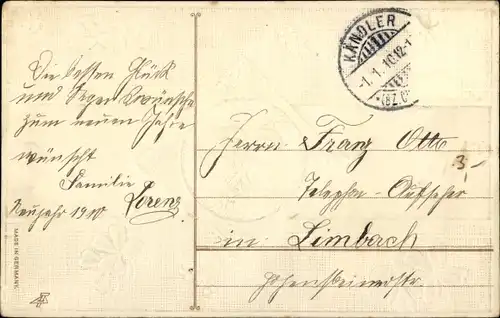 Die besten Glück
und Segenswünsche
zum neuen Jahre
wünscht
Familie
Lorenz
Neujahr 1910
KÄNDLER
-1.1.10.12-1
*(BZ.C
Herrn Franz Otto
Telephon-Aufseher
in Limbach
Hohensteinerstr.
3,-
MADE IN GERMANY.